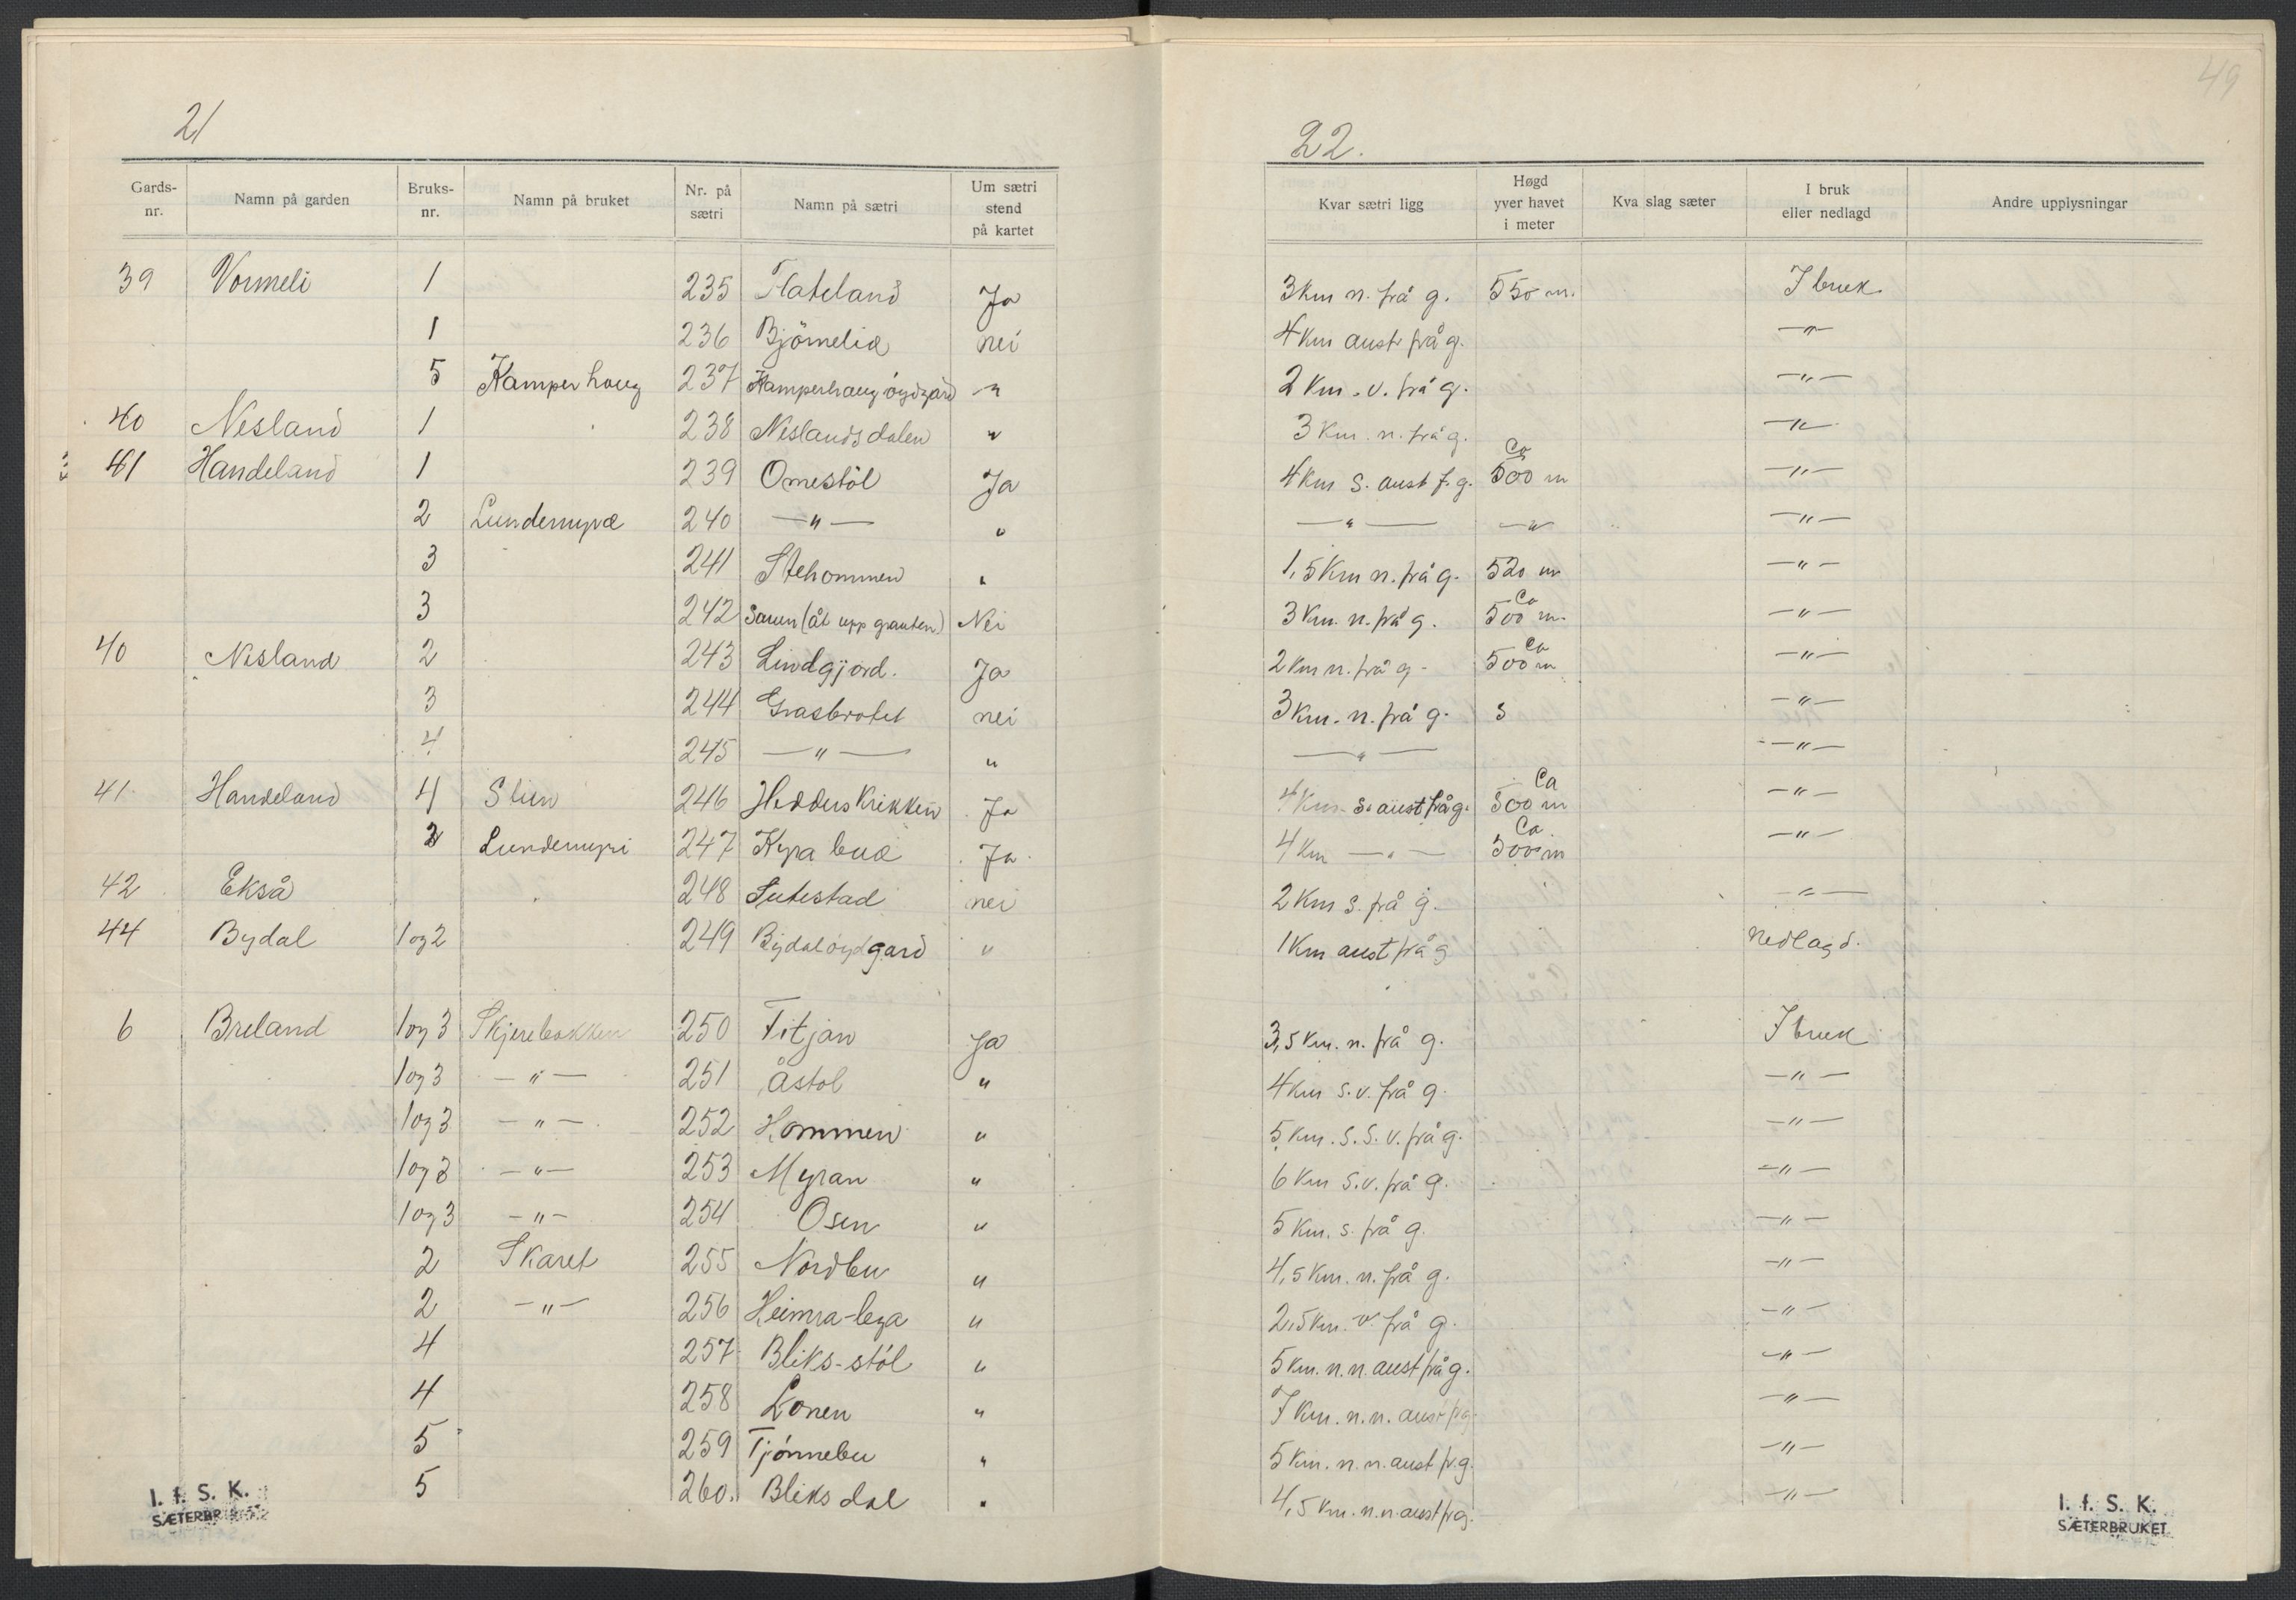 49
21
22.
Gards-nr. Namn på garden Bruks-nr. Namn på bruket Nr. på sætri Namn på sætri Um sætri stend på kartet Kvar sætri ligg Høgd yver havet i meter Kva slag sæter I bruk eller nedlagd Andre upplysningar
39 Vormeli 1 235 Flateland Ja 3 km n. frå g. 550 m. I bruk
1 236 Björnelia nei 4 km aust frå g. —"—
5 Kamperhaug 237 Kamperhaug öydgård —" 2 km. v. frå g. —"—
40 Nesland 1 238 Neslandsdalen " 3 km. n. frå g. —"—
41 Handeland 1 239 Omestöl Ja 4 km s. aust f. g. Ca 500 m —"—
2 Lundemyra 240 —"— " —"— —" —"—
3 241 Stehommen " 1,5 km n. frå g. 520 m —"—
3 242 Sauen (åt upp grauten) Nei 3 km. n. frå g. Ca 500 m. —"—
40 Nesland 2 243 Lindgjord. Ja 2 km n. frå g. Ca 500 m —"—
3 244 Grasbrotet nei 3 km. n. frå g. s —"—
4 245 —"— " —"— —"—
41 Handeland 4 Stien 246 Hedderskrikken Ja 4 km s. aust frå g. Ca 500 m —"—
2 Lundemyri 247 Kyrabua Ja 4 km —"— Ca. 500 m —"—
42 Ekså 248 Sutestad nei 2 km s. frå g. —"—
44 Bydal 1 og 2 249 Bydalöydgard " 1 km aust frå g nedlagd.
6 Breland 1 og 3 Skjerebakken 250 Fitjan Ja 3,5 km. n. frå g. I bruk
1 og 3 —"— 251 Åstol " 4 km s.v. frå g. —"—
1 og 3 —"— 252 Hommen " 5 km. s.s.v. frå g. —"—
1 og 3 —"— 253 Myran " 6 km s.v. frå g. —"—
1 og 3 —"— 254 Osen " 5 km. s. frå g. —"—
2 Skaret 255 Nordbu " 4,5 km. n. frå g. —"—
2 —"— 256 Heimra-lega " 2,5 km. v. frå g. —"—
4 257 Bliks-stöl " 5 km. n.n. aust frå g. —"—
4 258 Lonen " 7 km. n.n. aust fr g. —"—
5 259 Tjönnebu " 5 km. n.n. aust fr. g. —"—
5 260. Bliksdal " 4,5 km. n.n. aust fr g. —"—
I. f. S. K.
SÆTERBRUKET
I. f. S. K.
SÆTERBRUKET